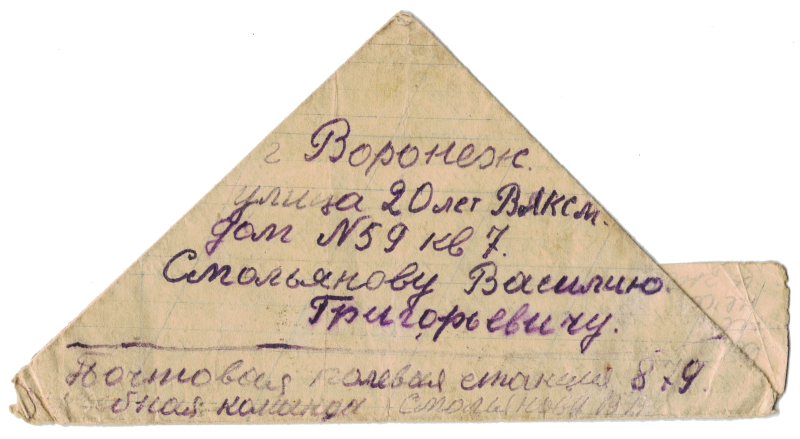 г Воронеж.
улица 20 лет ВЛКСМ.
дом №59 кв 7.
Смольянову Василию
Григорьевичу.
Почтовая полевая станция
команда